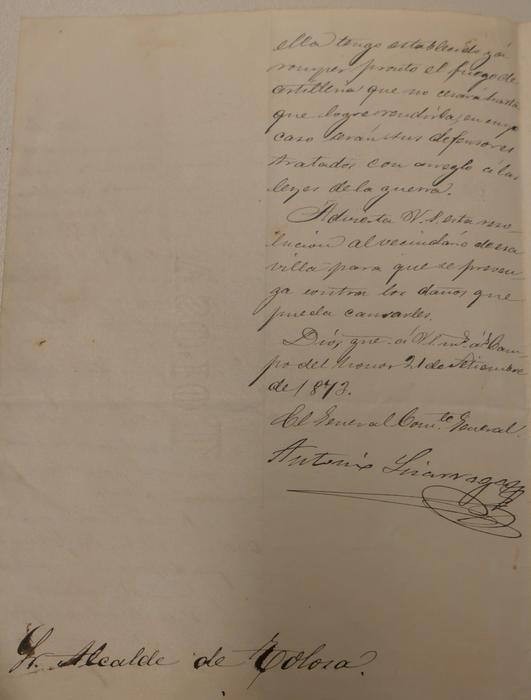 ella tengo establecido y á
romper pronto el fuego de
artilleria que no cesará hasta
que logre rendirla, en cuyo
caso serán sus defensores
tratados con arreglo á las
leyes de la guerra.
Advierta V.S. esta reso-
lucion al vecindario de esa
villa para que se preven-
ga contra los daños que
pueda causarles.
Dios gue. á V. m.s a.s Cam-
po del honor 21 de Setiembre
de 1873.
El General Com.te General.
Antonio Lizarraga
Sr. Alcalde de Tolosa.